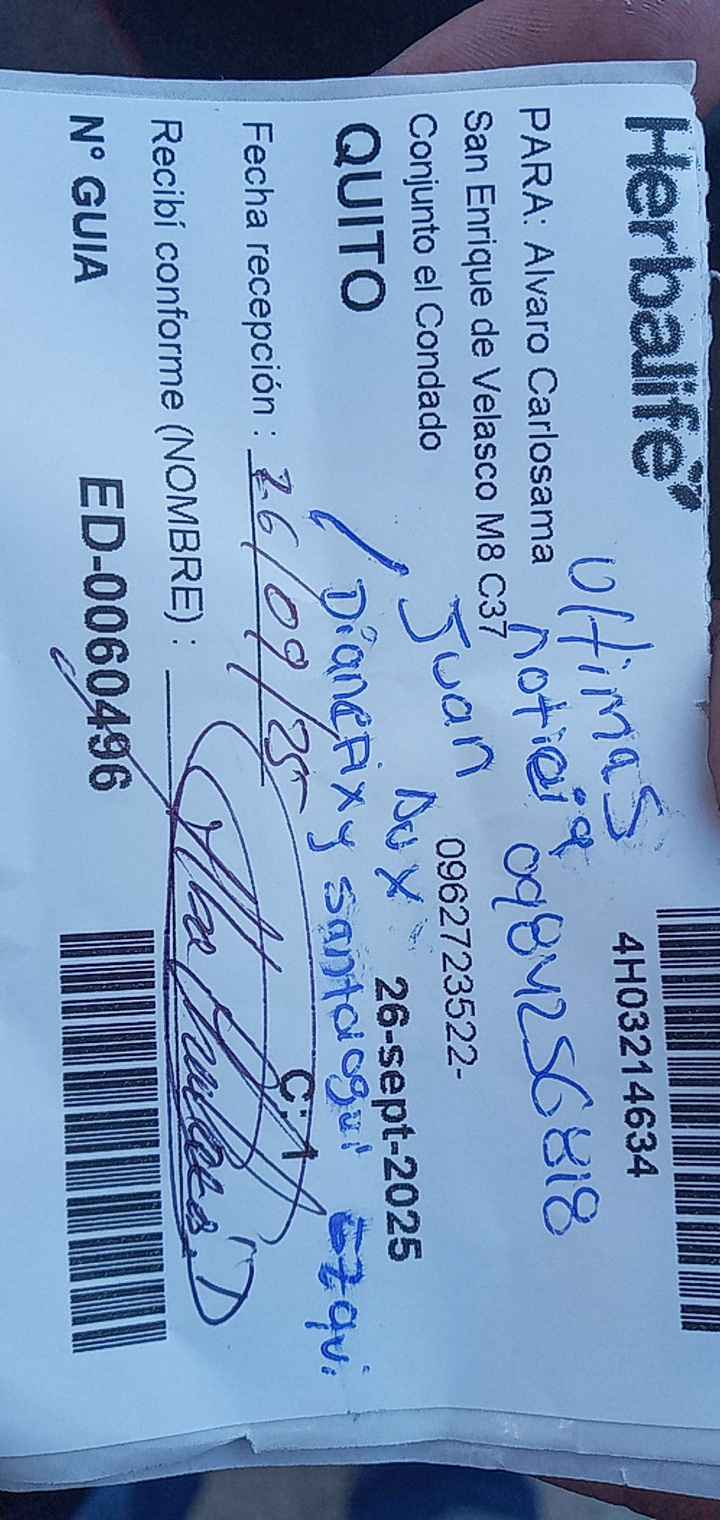 Herbalife
4H03214634
ultimas
PARA: Alvaro Carlosama
notieia 0984256818
San Enrique de Velasco M8 C37
Juan
0962723522-
Conjunto el Condado
QUITO
26-sept-2025
C: 1
Fecha recepción : 26/09/25
Recibí conforme (NOMBRE) :
N° GUIA
ED-0060496